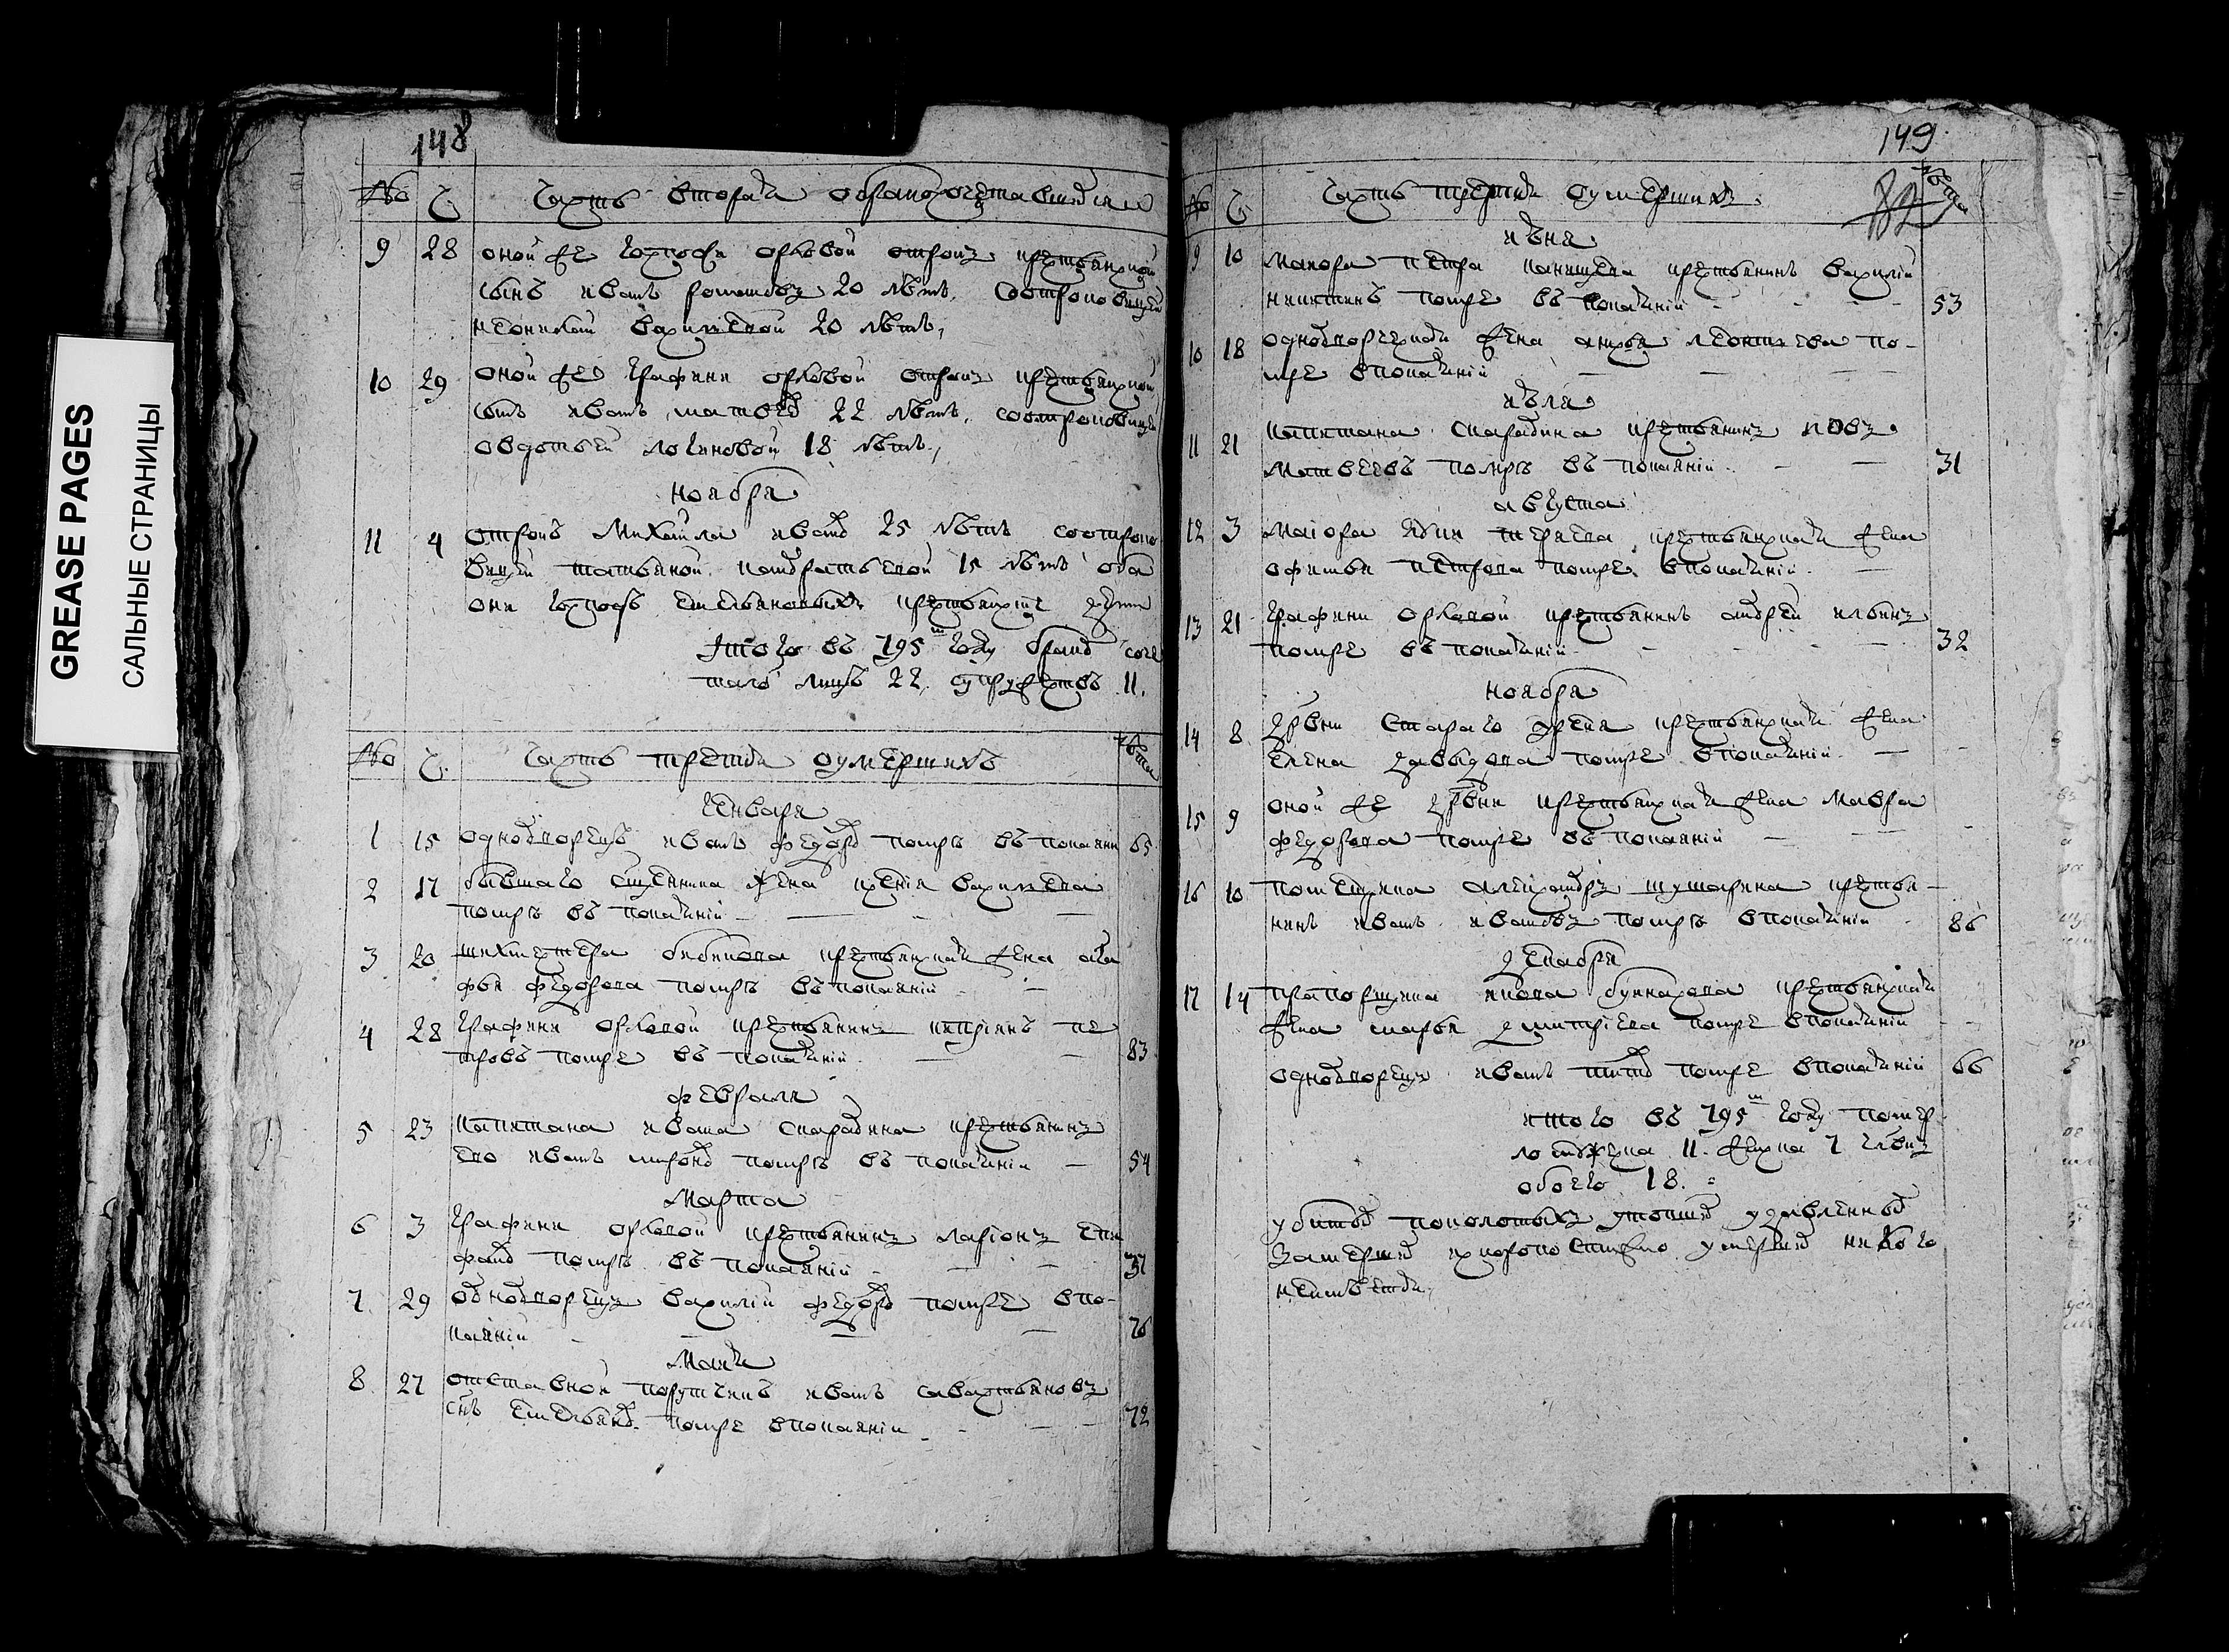 148
№ Ч. Часть вторая о бракосочетавшихся
9 28 оной же госпожи орловой отрокъ крестьянской
сынъ иванъ романовъ 20 лѣтъ, соотроковицей
неонилой васильевой 20 лѣтъ,
10 29 оной же графини орловой отрокъ крестьянской
сынъ иванъ матвеевъ 22 лѣтъ, соотроковицей
овдотьей логиновой 18 лѣтъ,
ноября
11 4 отрокъ михайла ивановъ 25 лѣтъ соотроко
вицей татьяной кондратьевой 15 лѣтъ оба
они господъ крестьянские дети
Итого въ 795м году браковъ соче
тало лицъ 22 супружествъ 11.
№ Ч. Часть третия о умершихъ лѣта
генваря
1 15 однодворецъ иванъ федоровъ помръ въ покаянии 65
2 17 бывшаго священника жена ксения васильева
помръ въ покаянии
3 20 шихместера бибикова крестьянская жена ага
фья федорова помръ въ покаянии
4 28 графини орловой крестьянинъ киприянъ пе
тровъ помре въ покаянии 83
февраля
5 23 капитана ивана скарядина крестьянинъ
ево иванъ мироновъ помръ въ покаянии 54
марта
6 3 графини орловой крестьянинъ ларионъ епи
фановъ помръ въ покаянии 37
7 29 однодворецъ василий федоровъ помре в по-
каянии 76
маия
8 27 отставной порутчикъ иванъ савастьяновъ
снъ емельяновъ помре в покаянии 72
149
№ Ч. Часть третия о умершихъ лѣта
июня
9 10 маиора петра крестьянинъ василий
никитинъ помре въ покаянии 53
10 18 однодворческая жена леонтьева по-
мре в покаянии
июля
11 21 капитана скарядина крестьянинъ иовъ
матвеевъ помръ въ покаянии 31
августа
12 3 маиора крестьянская жена
офимья петрова помре в покаянии
13 21 графини орловой крестьянинъ андрей ильинъ
помре въ покаянии 32
ноября
14 8 дрвни стараго крестьянская жена
елена давыдова помре в покаянии
15 9 оной же дрвни крестьянская жена мавра
федорова помре въ покаянии
16 10 помещика александръ шушарина крестья-
нинъ иванъ ивановъ помръ в покаянии 86
декабря
17 14 прапорщика якова крестьянская
жена марья дмитриева помре в покаянии
однодворецъ иванъ титовъ помре в покаянии 66
итого въ 795м году помер
ло мужеска 11. женска 7
обоего 18.
убитыхъ поколотыхъ утопшихъ удавленныхъ
замершихъ скоропостижно умершихъ никого
неимѣется,
GREASE PAGES
САЛЬНЫЕ СТРАНИЦЫ